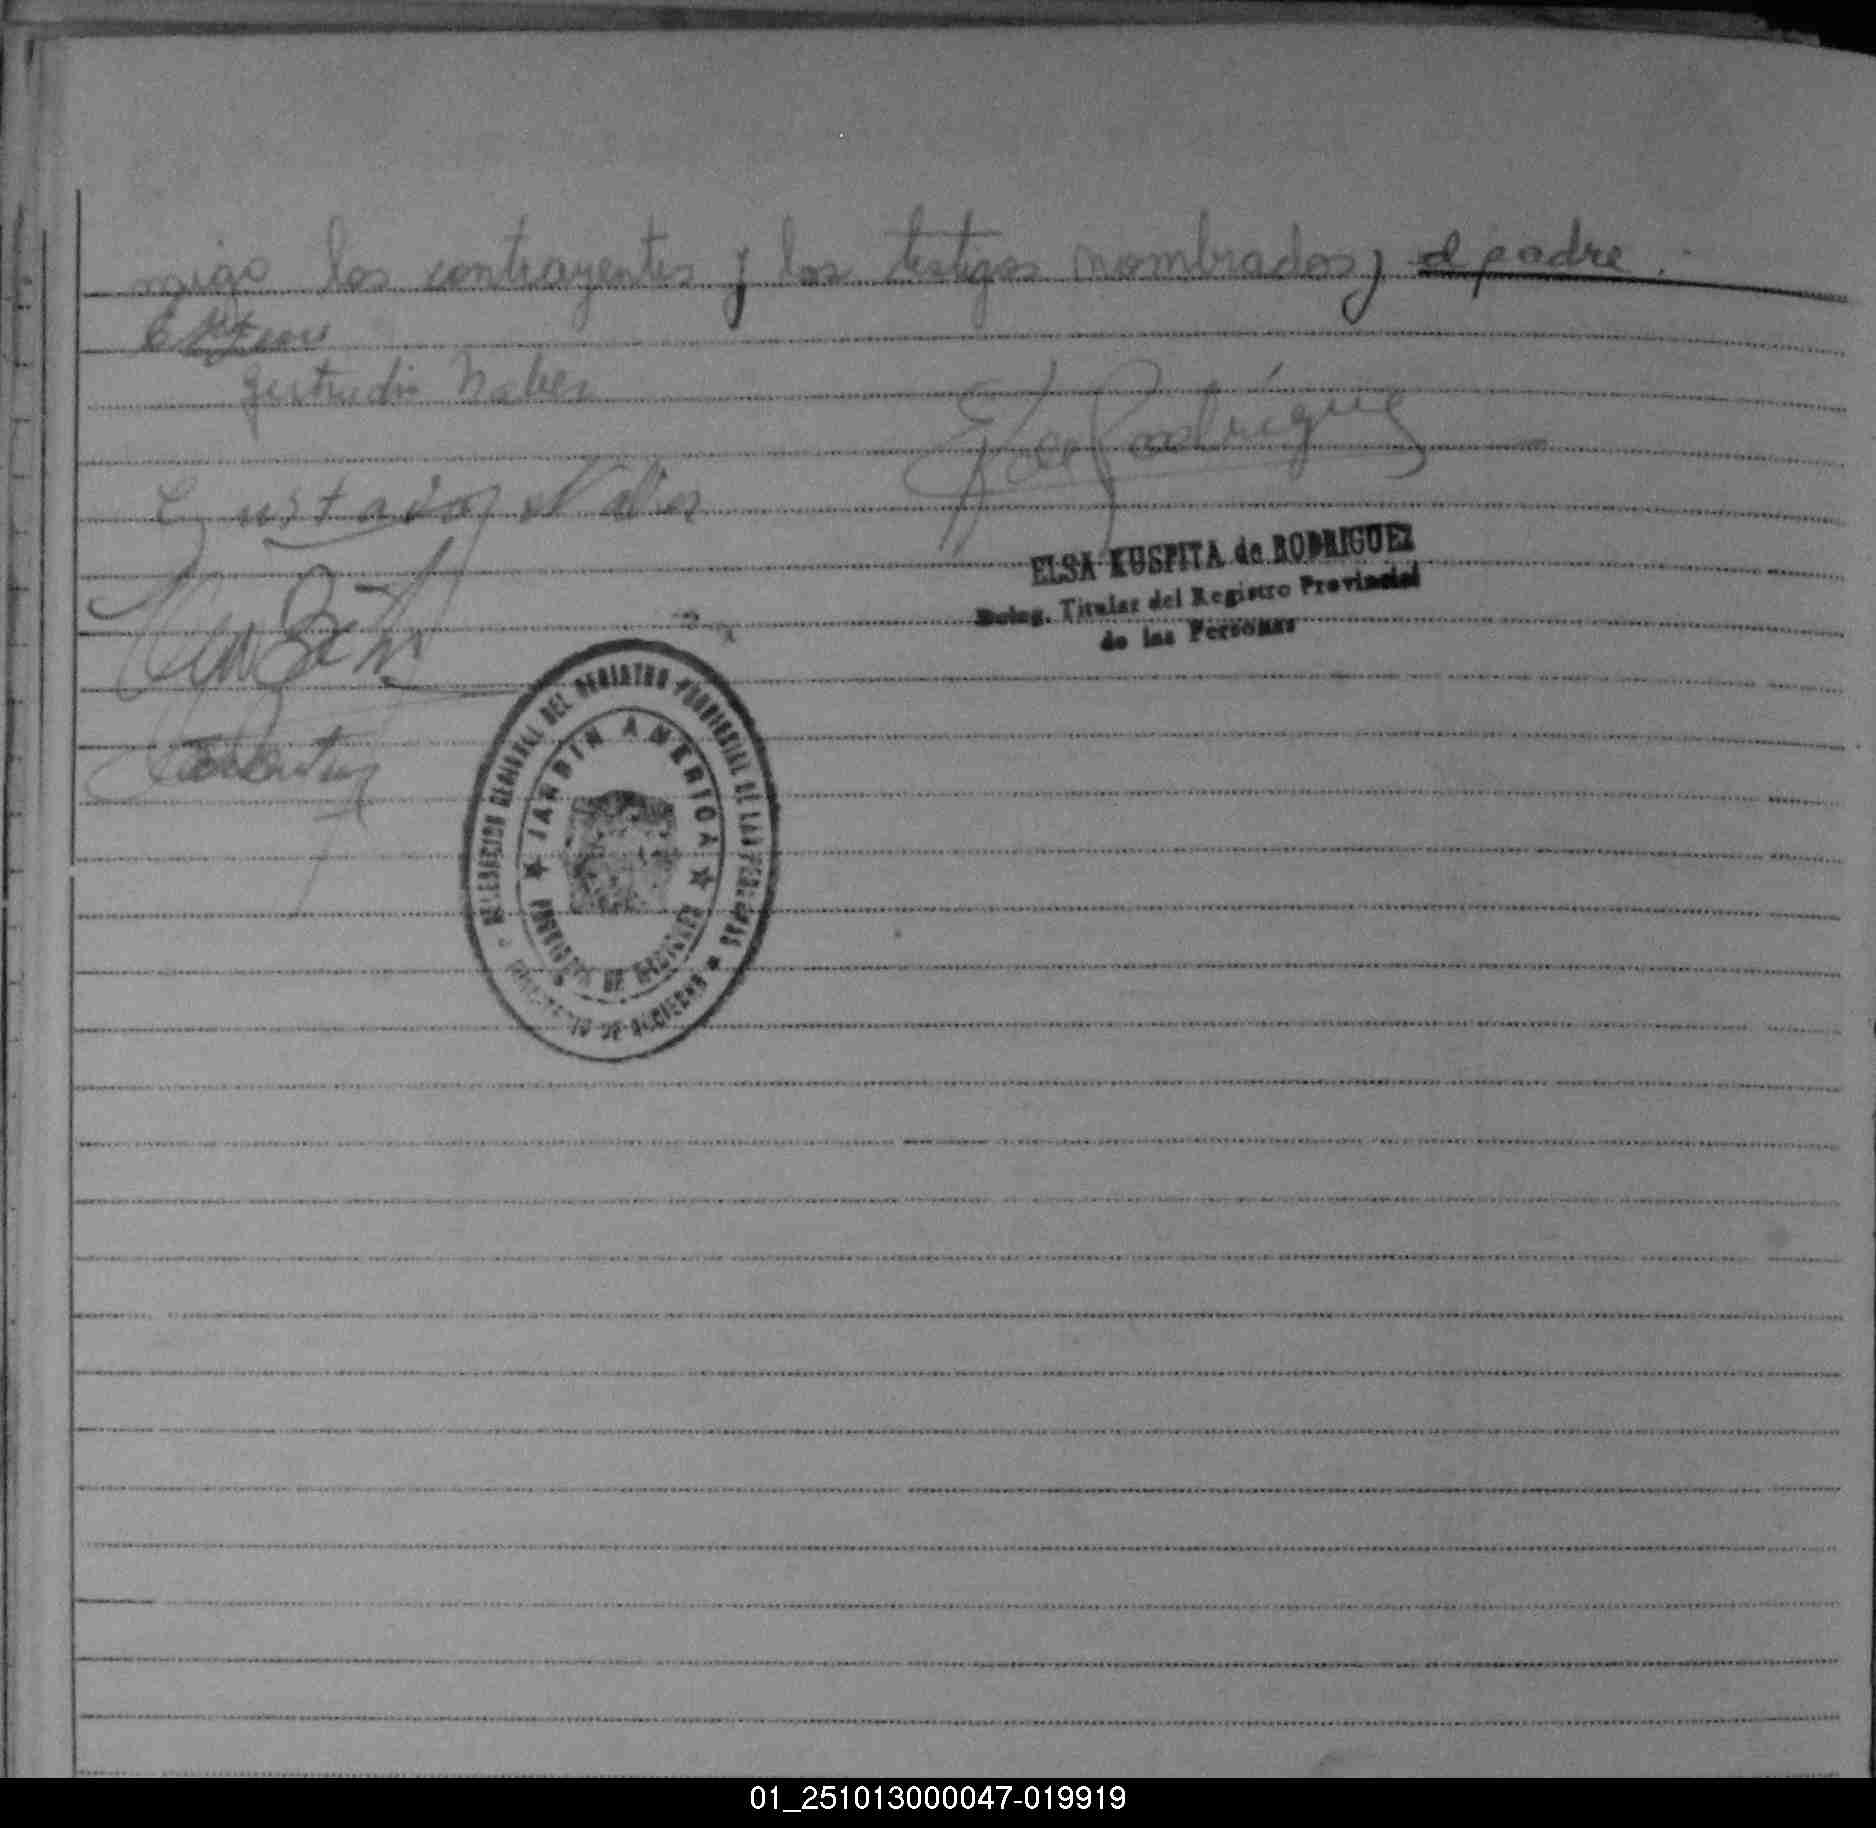 migo los contrayentes y los testigos nombrados y el padre.
Gertrudis Naber
Gustavo Naber
Elsa Rodríguez
ELSA KUSPITA de RODRIGUEZ
Deleg. Titular del Registro Provincial
de las Personas
DELEGACION REGIONAL DEL REGISTRO PROVINCIAL DE LAS PERSONAS
JARDIN AMERICA
PROVINCIA DE MISIONES
MINISTERIO DE GOBIERNO
01_251013000047-019919